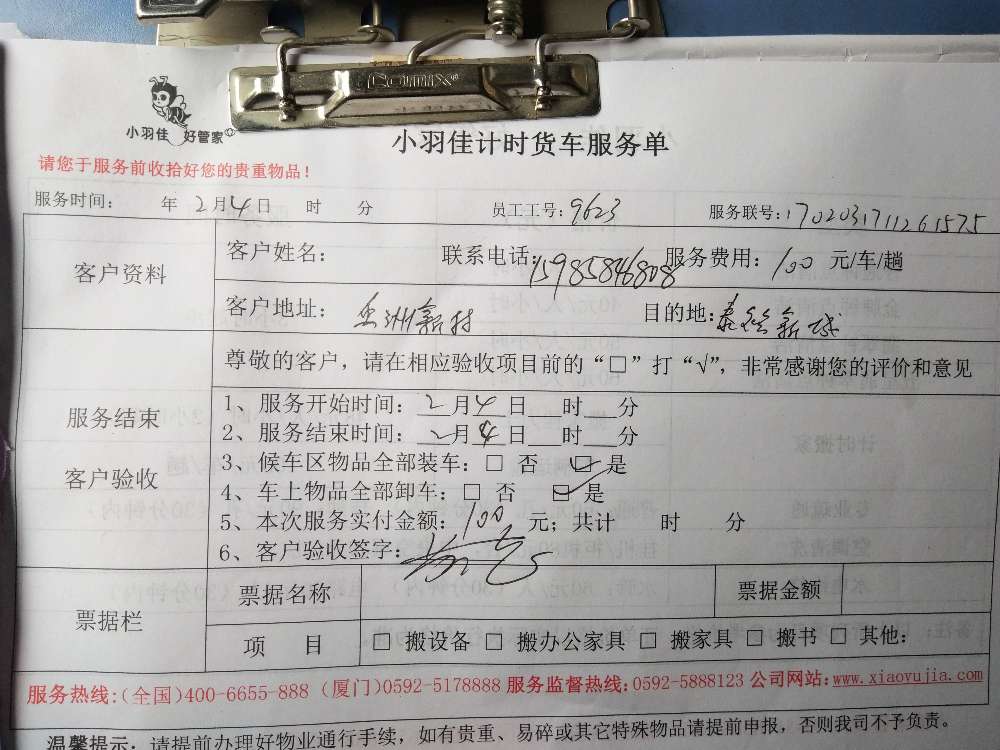 COMIX
小羽佳 好管家
小羽佳计时货车服务单
请您于服务前收拾好您的贵重物品！
服务时间： 年 2月4日 时 分 员工工号：9623 服务联号：1702031711261575
客户资料 客户姓名： 联系电话：15985846808 服务费用：100 元/车/趟
客户地址：亚洲新村 目的地：
尊敬的客户，请在相应验收项目前的“□”打“√”，非常感谢您的评价和意见
服务结束
客户验收
1、服务开始时间：2月4日 时 分
2、服务结束时间：2月4日 时 分
3、候车区物品全部装车：□ 否 ☑ 是
4、车上物品全部卸车：□ 否 ☑ 是
5、本次服务实付金额：100 元；共计 时 分
6、客户验收签字：
票据栏 票据名称 票据金额
项 目 □ 搬设备 □ 搬办公家具 □ 搬家具 □ 搬书 □ 其他：
服务热线：（全国）400-6655-888（厦门）0592-5178888 服务监督热线：0592-5888123 公司网站：www.xiaoyujia.com
温馨提示：请提前办理好物业通行手续，如有贵重、易碎或其它特殊物品请提前申报，否则我司不予负责。